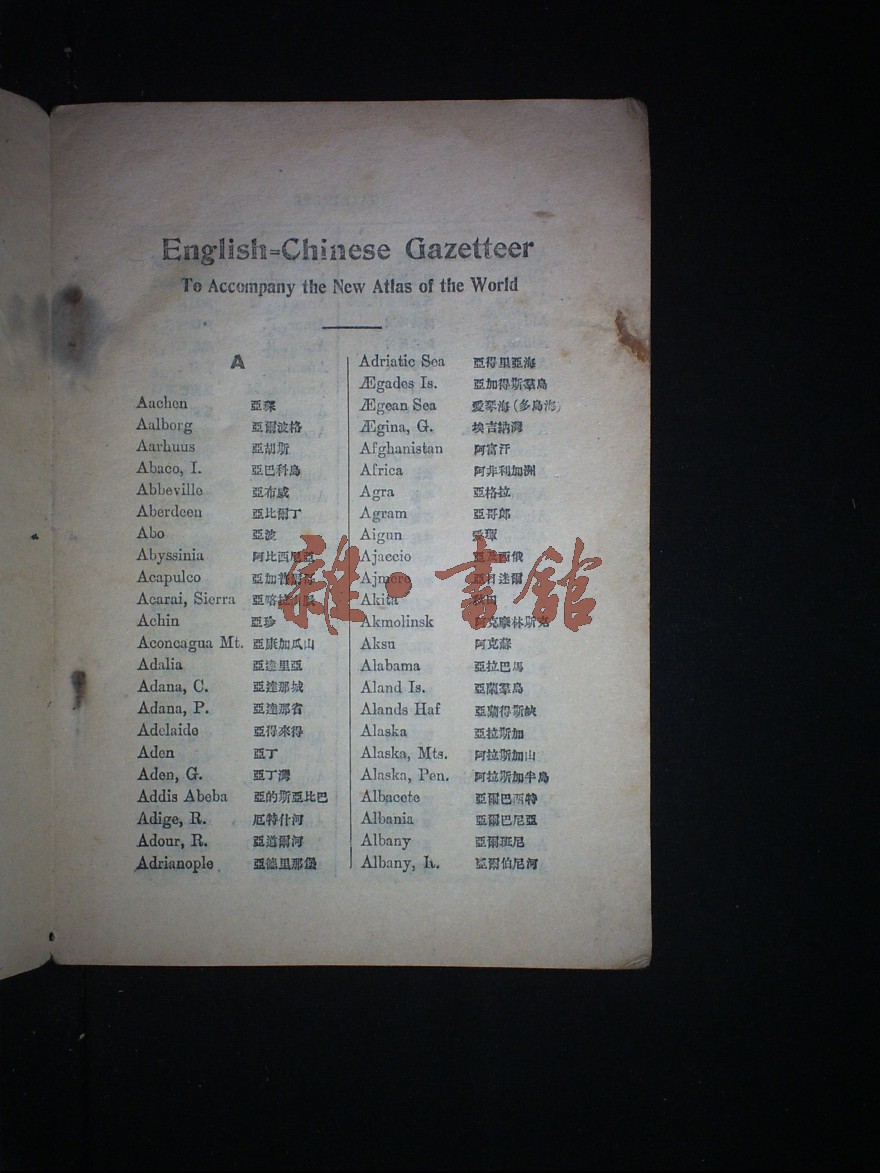 English-Chinese Gazetteer
To Accompany the New Atlas of the World
A
Aachen 亞琛
Aalborg 亞爾波格
Aarhuus 亞胡斯
Abaco, I. 亞巴科島
Abbeville 亞布威
Aberdeen 亞比爾丁
Abo 亞波
Abyssinia 阿比西尼亞
Acapulco
Acarai, Sierra
Achin 亞珍
Aconcagua Mt. 亞康加瓜山
Adalia 亞達里亞
Adana, C. 亞達那城
Adana, P. 亞達那省
Adelaide 亞得來得
Aden 亞丁
Aden, G. 亞丁灣
Addis Abeba 亞的斯亞比巴
Adige, R. 厄特什河
Adour, R. 亞道爾河
Adrianople 亞德里那堡
Adriatic Sea 亞得里亞海
Ægades Is. 亞加得斯羣島
Ægean Sea 愛琴海(多島海)
Ægina, G. 埃吉納灣
Afghanistan 阿富汗
Africa 阿非利加洲
Agra 亞格拉
Agram 亞哥郎
Aigun
Ajaccio
Ajmere
Akita 秋田
Akmolinsk 阿克摩林斯克
Aksu 阿克蘇
Alabama 亞拉巴馬
Aland Is. 亞蘭羣島
Alands Haf 亞蘭得斯峽
Alaska 亞拉斯加
Alaska, Mts. 阿拉斯加山
Alaska, Pen. 阿拉斯加半島
Albacete 亞爾巴西特
Albania 亞爾巴尼亞
Albany 亞爾班尼
Albany, R. 亞爾伯尼河
雜·書館